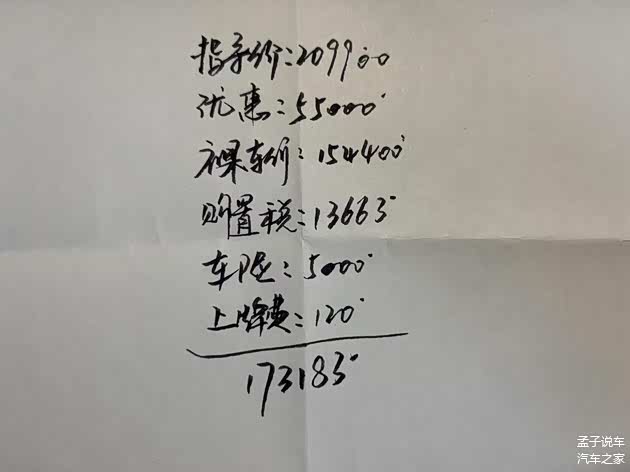 指导价:209900
优惠:55000
裸车价:154400
购置税:13663
车险:5000
上牌费:120
173183
孟子说车
汽车之家